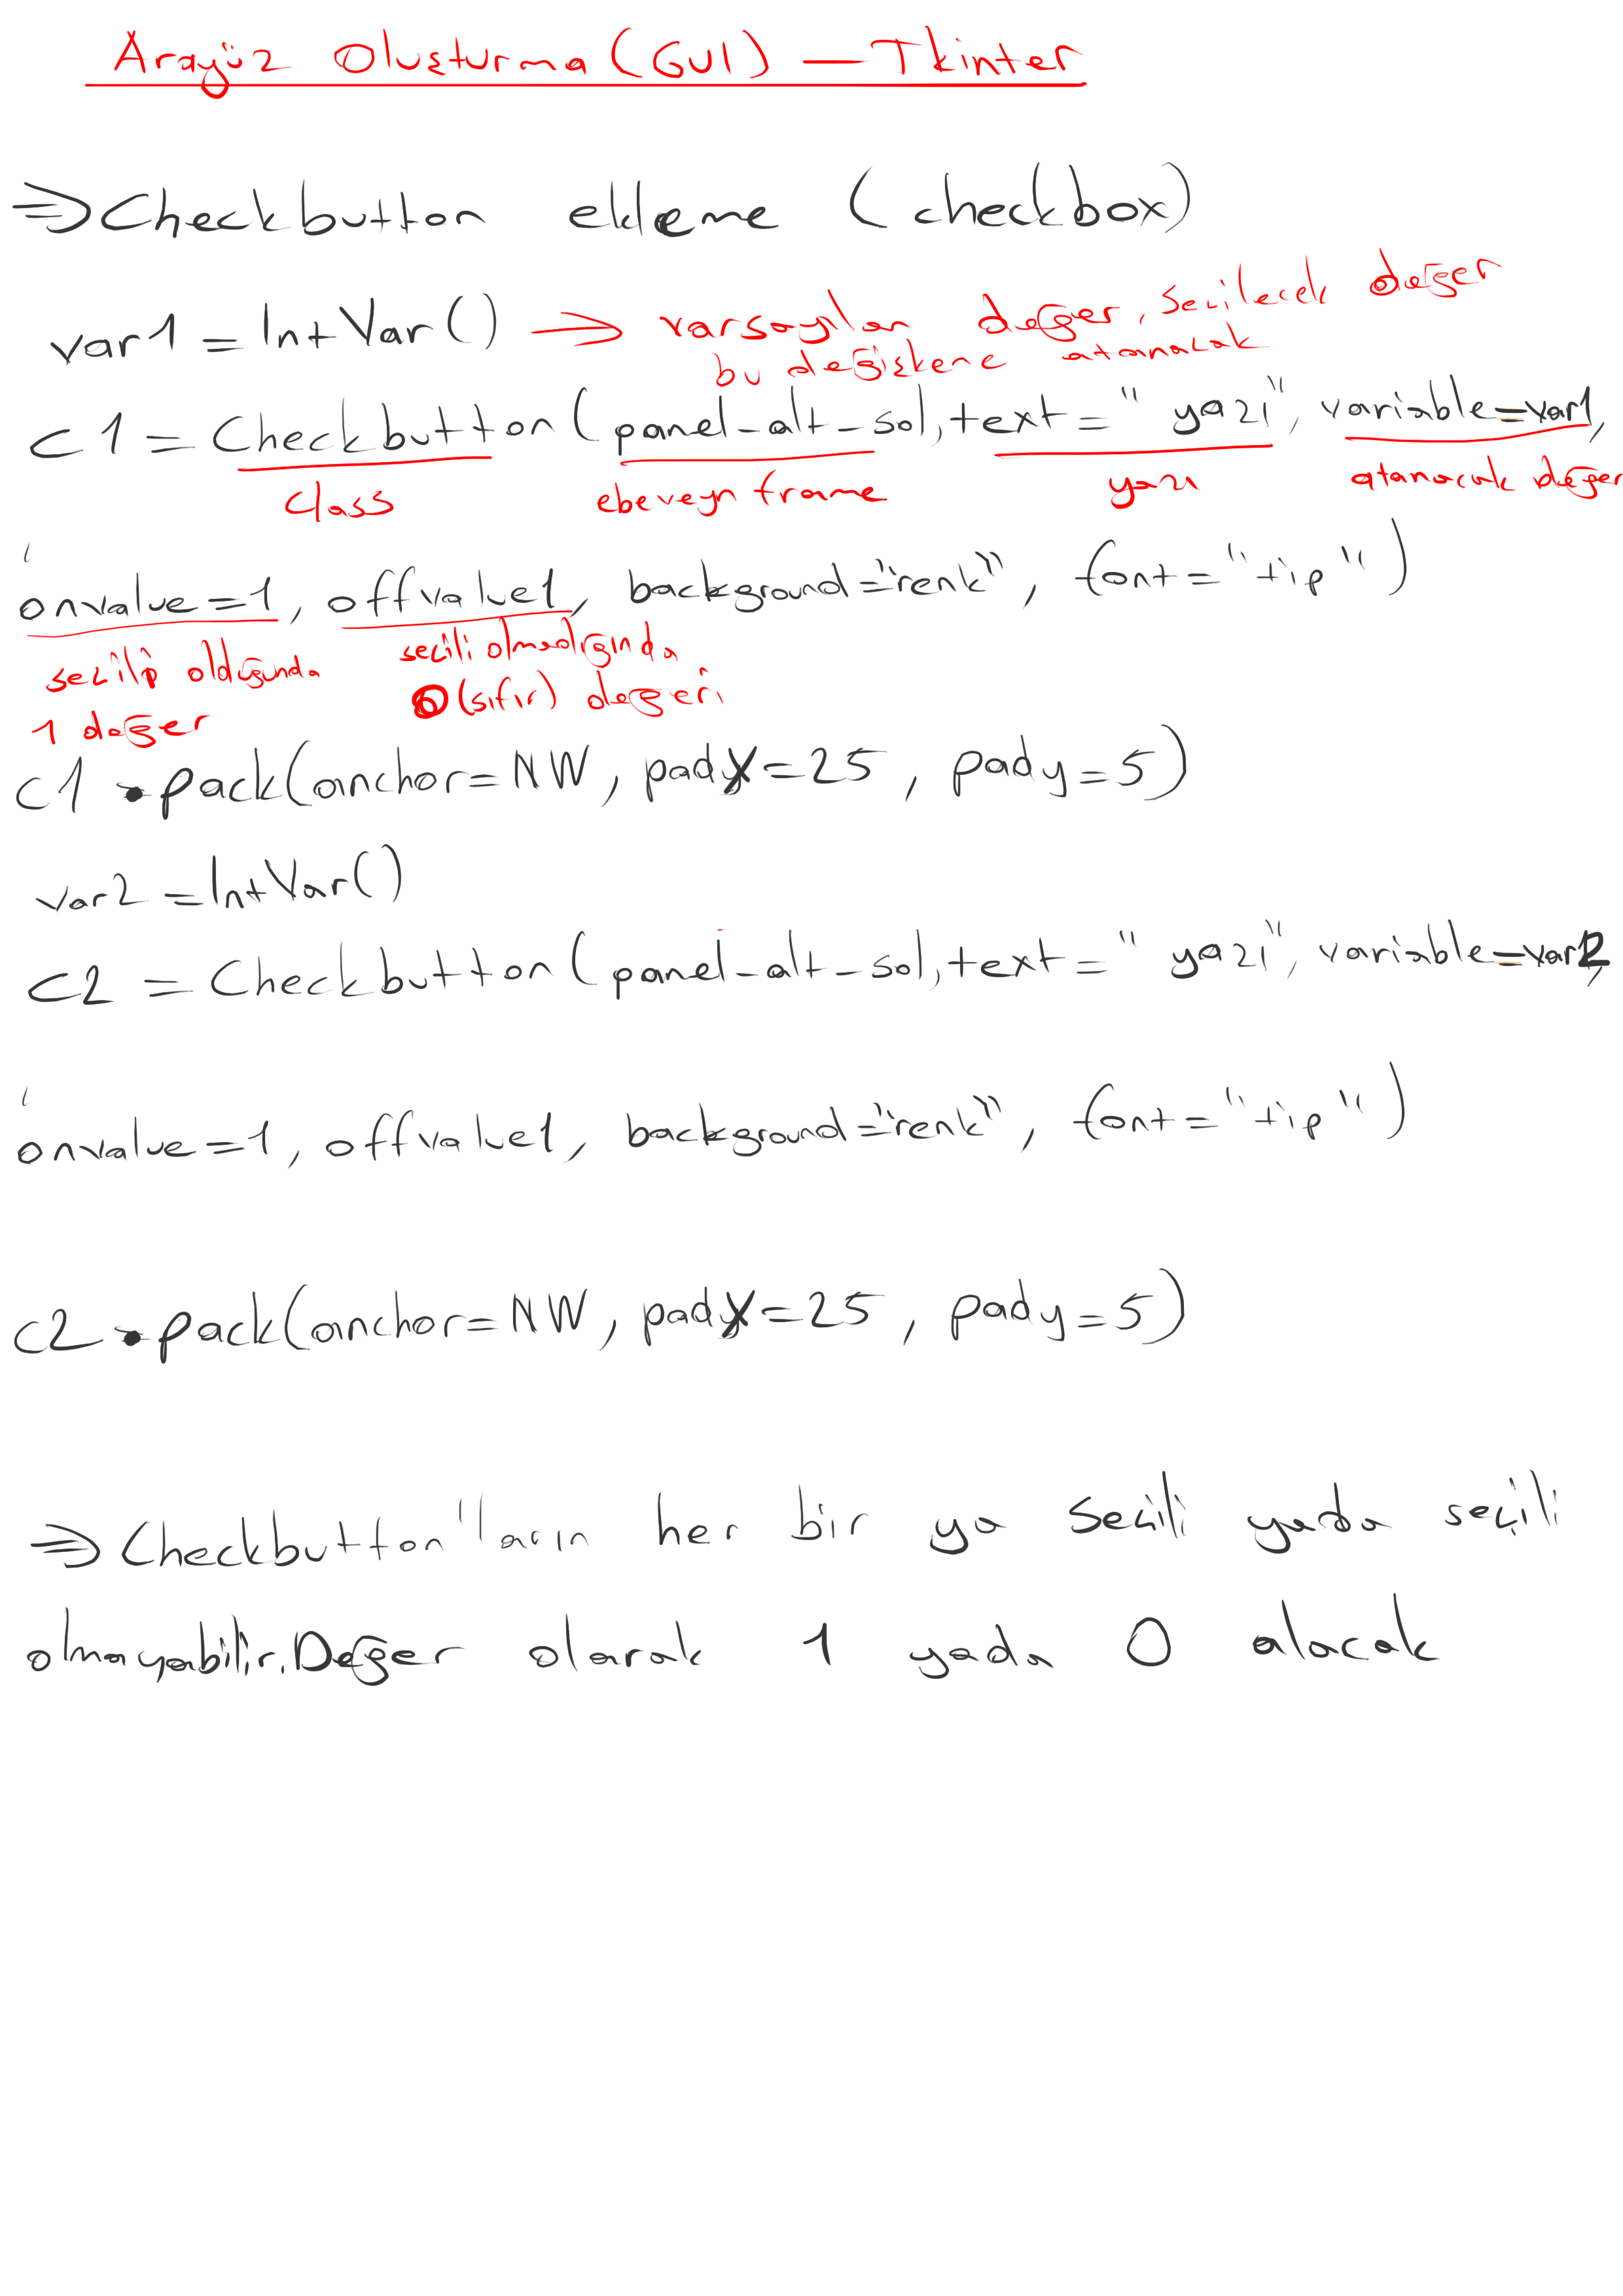 Arayüz Oluşturma (GUI) — Tkinter
⇒ Checkbutton ekleme (checkbox)
var1 = IntVar() → varsayılan değer, seçilecek değer
bu değişkene atanacak
c1 = Checkbutton(panel-alt-sol, text="yazı", variable=var1,
class ebeveyn frame yazı atanacak değer
onvalue=1, offvalue1, background="renk", font="tip")
seçili olduğunda seçili olmadığında
1 değer 0 (sıfır) değeri
c1.pack(anchor=NW, padx=25, pady=5)
var2 = IntVar()
c2 = Checkbutton(panel-alt-sol, text="yazı", variable=var2,
onvalue=1, offvalue1, background="renk", font="tip")
c2.pack(anchor=NW, padx=25, pady=5)
⇒ Checkbutton"ların her bir ya seçili yada seçili
olmayabilir. Değer olarak 1 yada 0 alacak